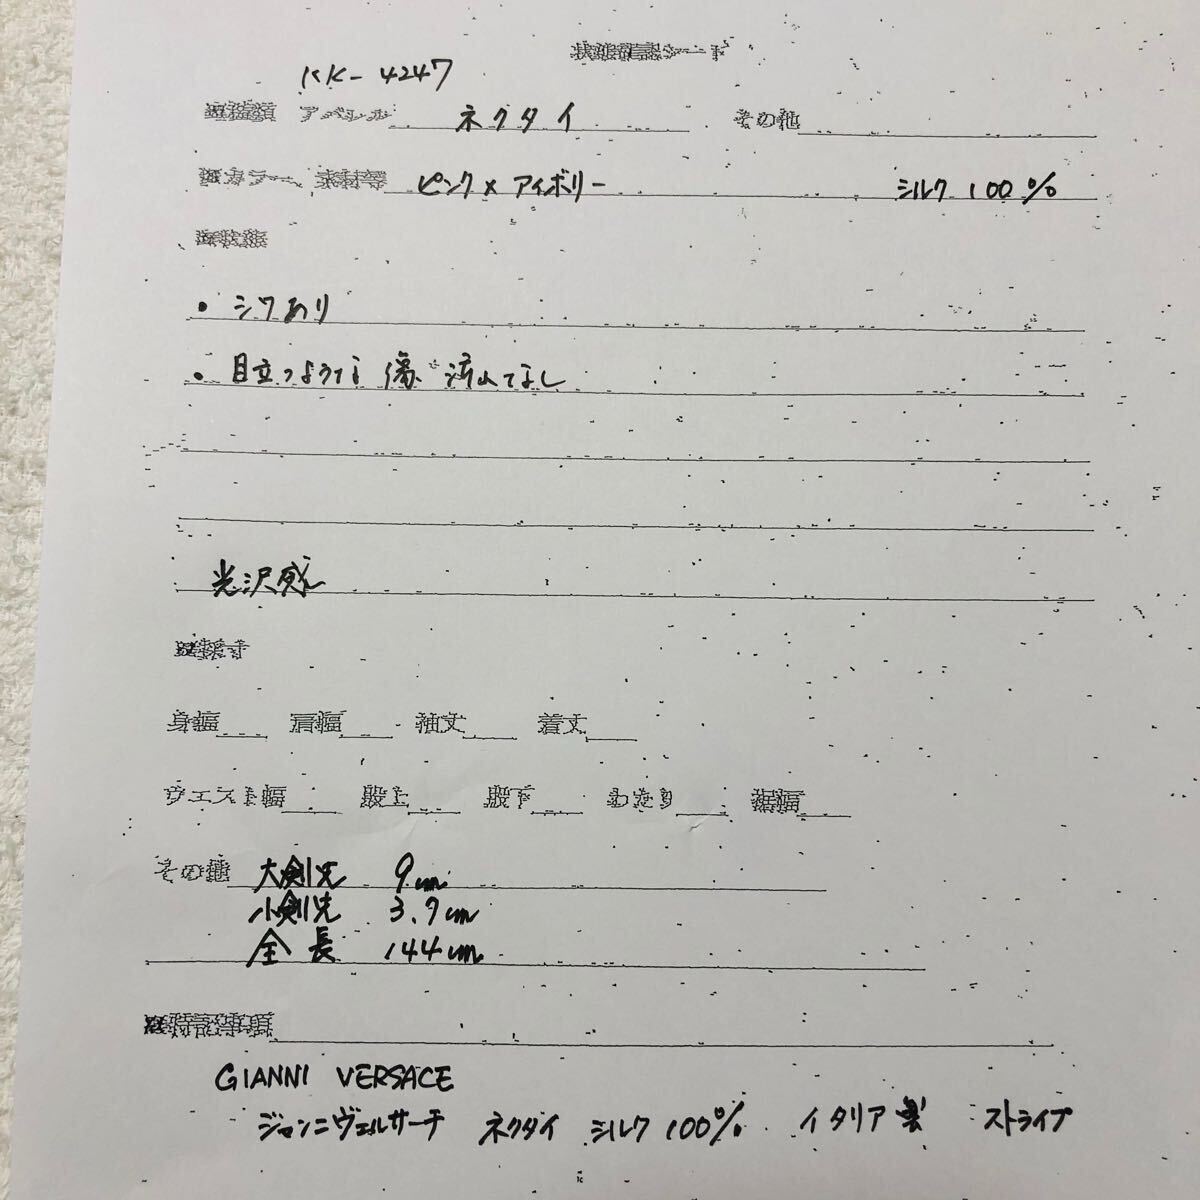 状態確認シート
KK-4247
※種類 アパレル ネクタイ その他
※カラー、素材等 ピンク×アイボリー シルク 100%
※状態
・シワあり
・目立つような傷、汚れてなし
光沢感
※採寸
身幅 肩幅 袖丈 着丈
ウエスト幅 股上 股下 わたり 裾幅
その他 大剣先 9cm
小剣先 3.7cm
全長 144cm
※特記事項
GIANNI VERSACE
ジャンニヴェルサーチ ネクタイ シルク100% イタリア製 ストライプ